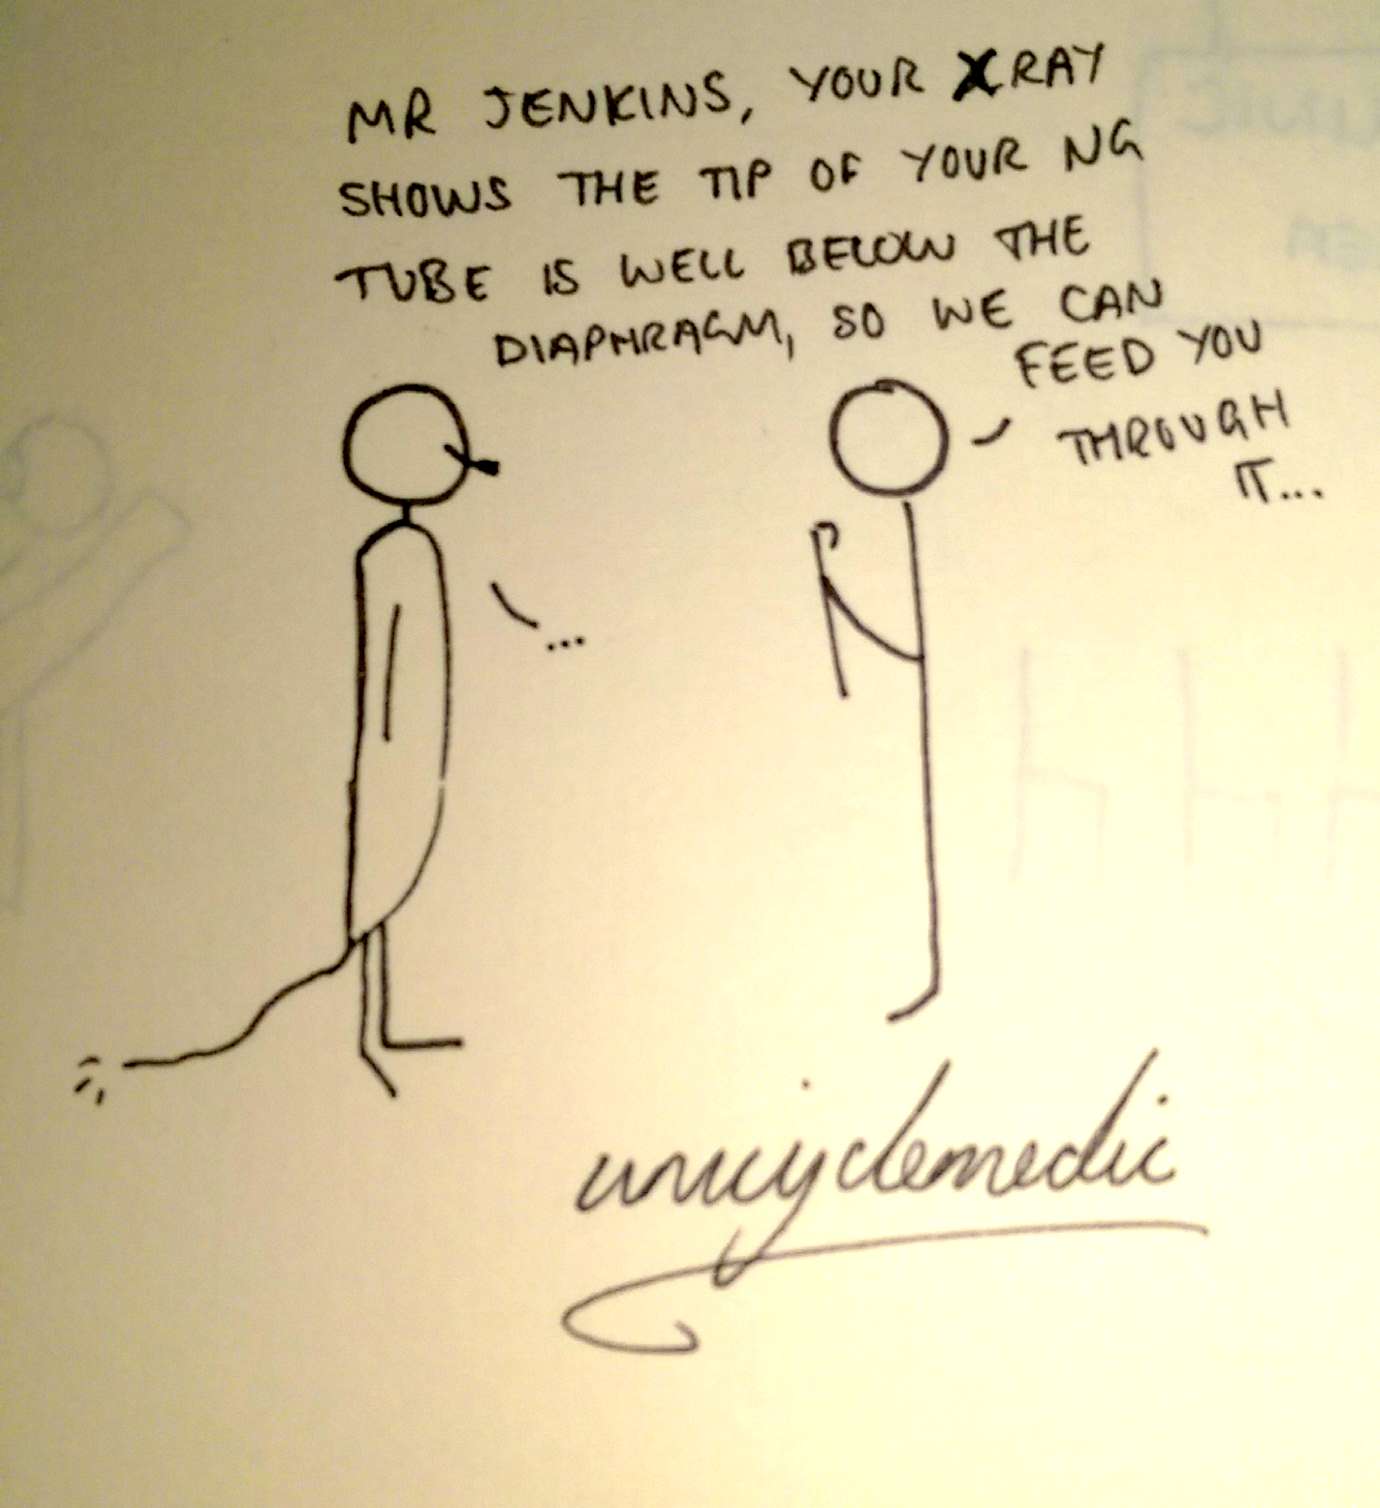 MR JENKINS, YOUR XRAY
SHOWS THE TIP OF YOUR NG
TUBE IS WELL BELOW THE
DIAPHRAGM, SO WE CAN
FEED YOU
THROUGH
IT...
...
unicyclemedic